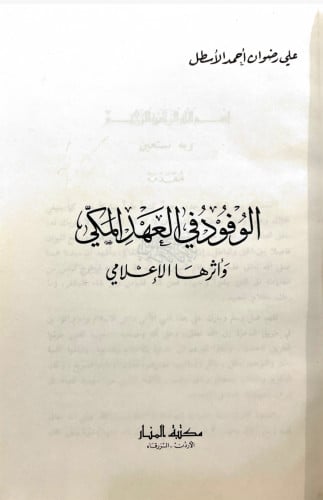 علي رضوان أحمد الأسطل
الوفود في العهد المكي
وأثرها الإعلامي
مكتبة المنار
الأردن - الزرقاء